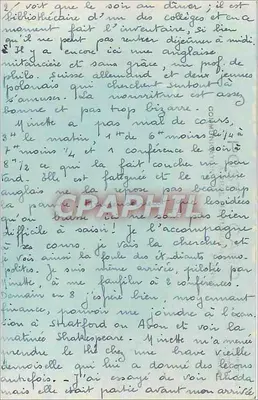 2/ voit que le soir au diner ; il est
bibliothécaire d'un des collèges et en a
moment fait l'inventaire, si bien
qu'il ne peut pas rentrer déjeuner à midi
Il y a encore ici une anglaise
et sans grâce, un prof. de
philo. suisse allemand et deux jeunes
polonais que cherchent surtout à
s'amuser. La nourriture est assez
bonne et pas trop bizarre.
Minette a pas mal de cours,
le matin, 1 h de 6 h moins le 1/4 à
7 h moins 1/4 et 1 conférence le soir à
8 h 1/2 ce que la fait coucher un peu
tard. Elle est fatiguée et le régime
anglais ne la repose pas beaucoup
la
qu'on
difficile à saisir ! Je l'accompagne
à ses cours, je vais la chercher, et
je vois ainsi la foule des étudiants cosmo-
polites. Je suis même arrivée, pilotée par
Minette, à me faufiler à 2 conférences.
Demain en 8 j'espère bien, moyennant
finance, pouvoir me joindre à l'excur-
sion à Stratford on Avon et voir la
matinée Shakespeare. Minette m'a menée
prendre le thé chez une brave vieille
demoiselle qui lui a donné des leçons
autrefois. - J'ai essayé de voir Rhoda
mais elle était partie avant mon arrivée,
GRAPHIL